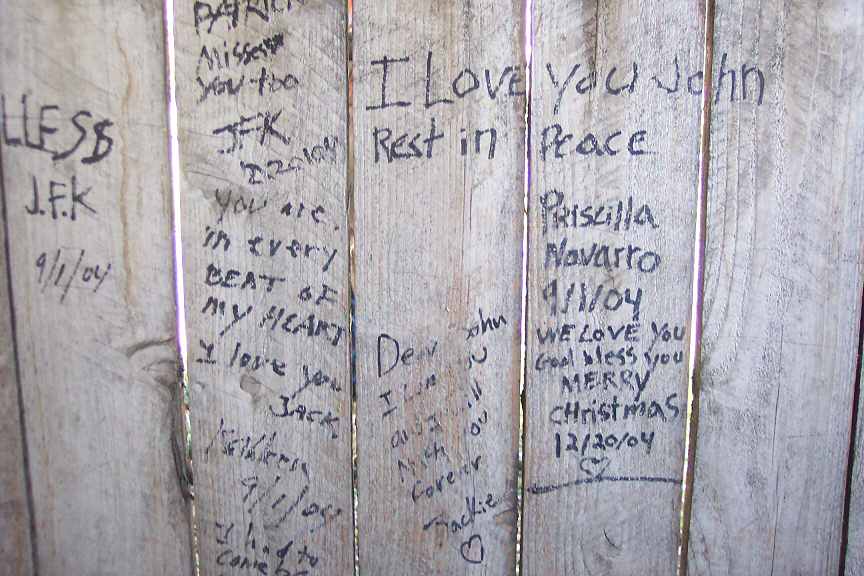 LLESS
J.F.K
9/1/04
PATRICK
Misses
you too
JFK
You are
in every
BEAT OF
MY HEART
I love you
JACK
9/1/04
I had to
come
I Love You John
Rest in Peace
Priscilla
Navarro
9/1/04
Dear John
I love you
and will
you
forever
Jackie
WE LOVE YOU
God bless you
MERRY
CHristmas
12/20/04